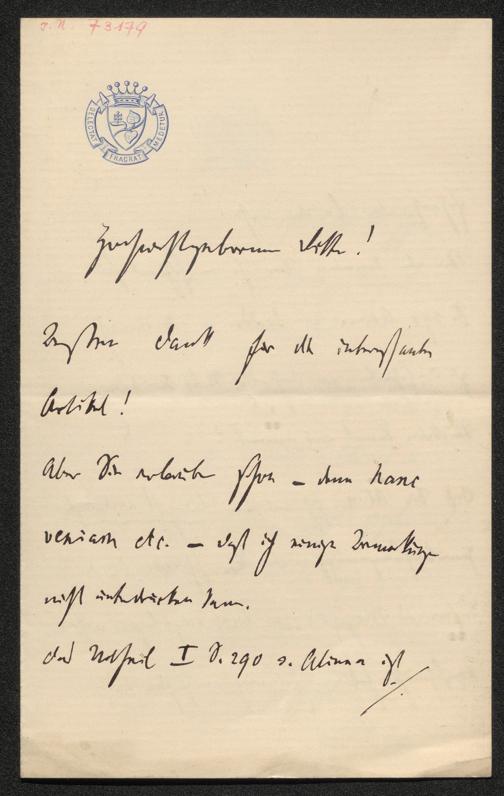 J. N. 73179
DELECTAT
FRAGRAT
MEDETUR
Hochwohlgeborener
Besten Dank für die interessanten
Artikel!
Aber Sie erlauben schon – denn hanc
veniam etc. – daß ich einige Bemerkungen
nicht unterdrücken kann.
Das Urtheil I S. 290 ist